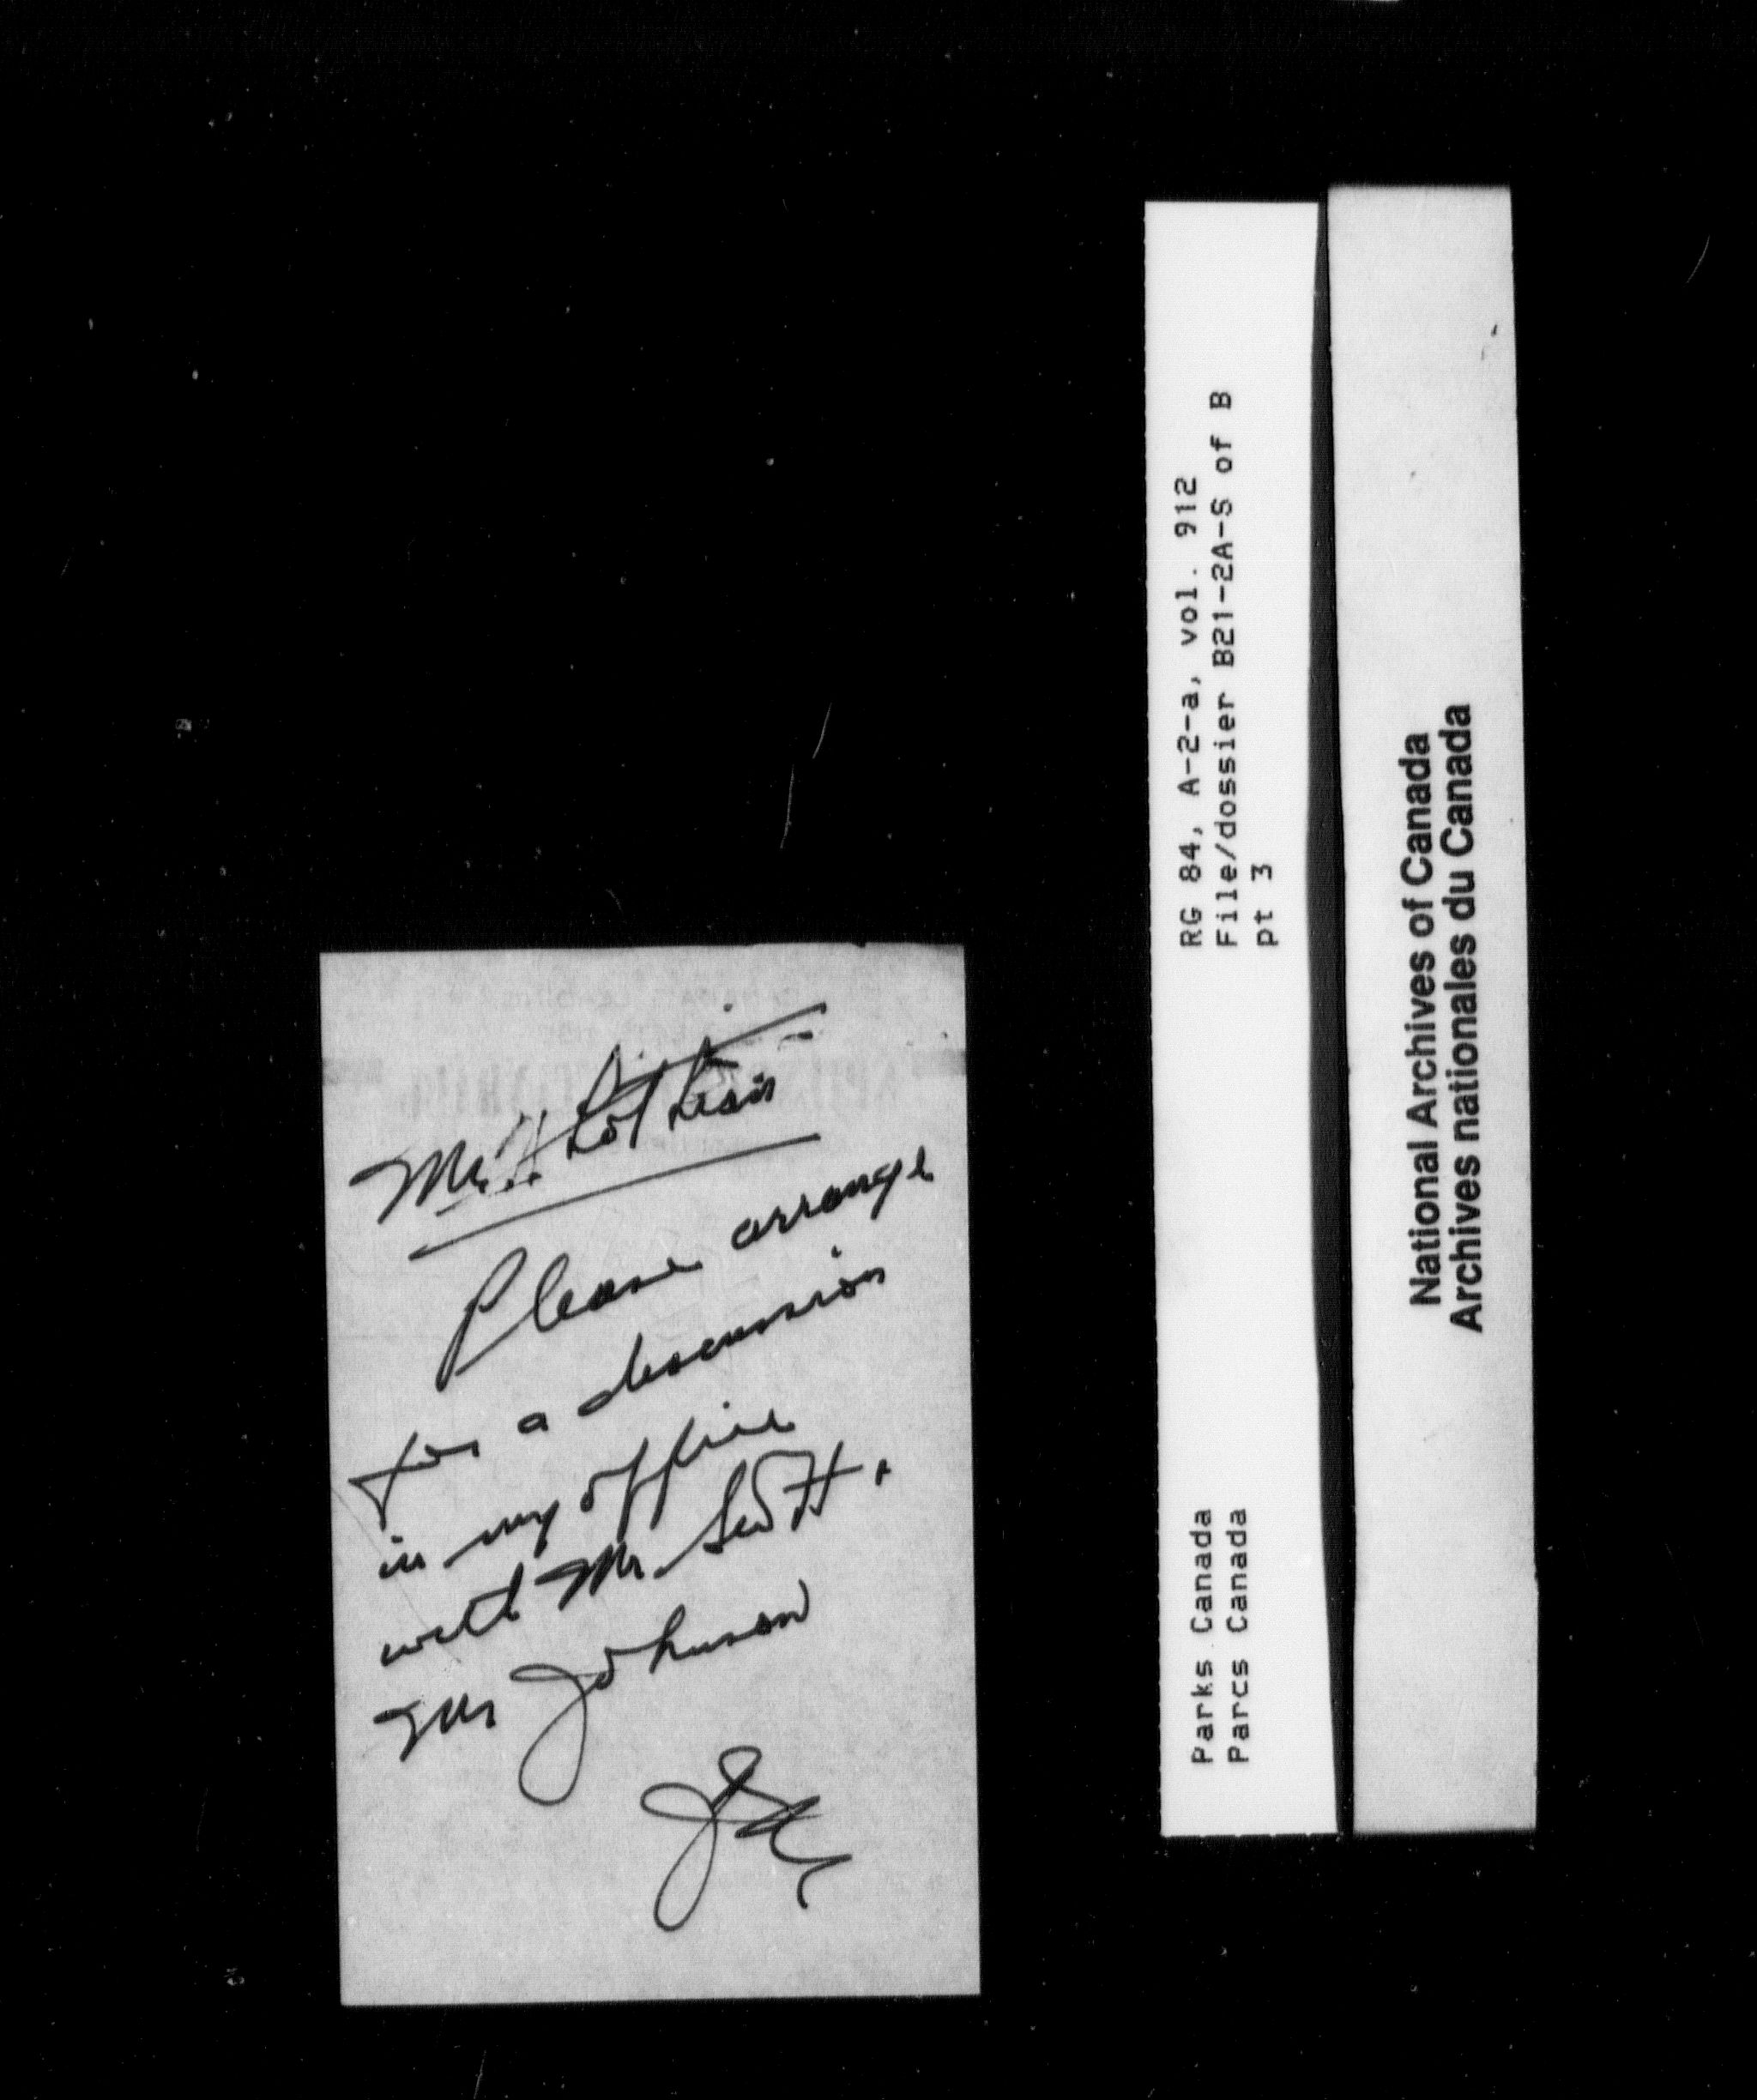 Mr. Lothian
Please arrange
for a discussion
in my office
with Mr Scott.
Mr Johnson
RG 84, A-2-a, vol. 912
File/dossier B21-2A-S of B
pt 3
Parks Canada
Parcs Canada
National Archives of Canada
Archives nationales du Canada